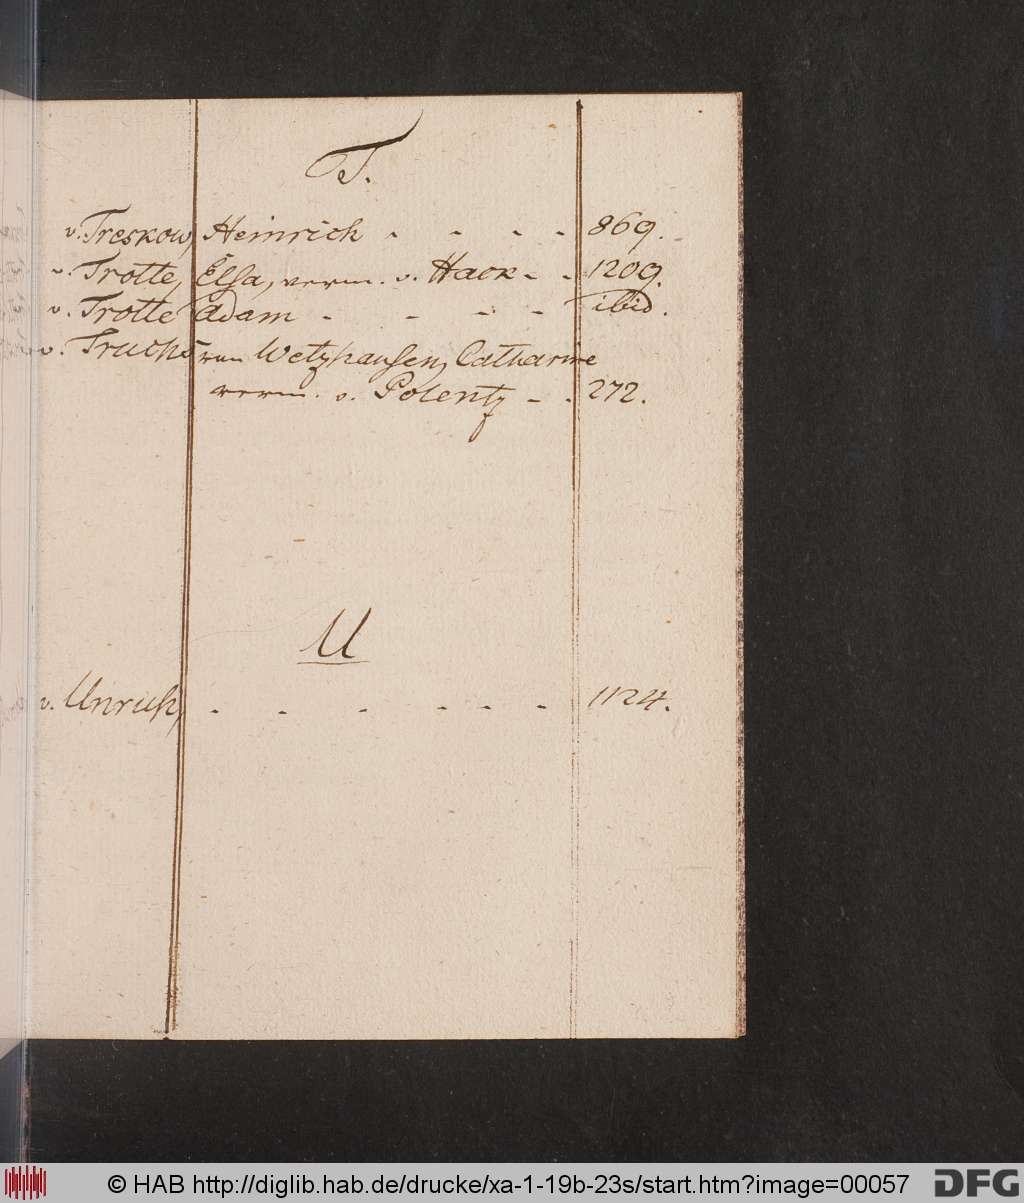 T.
v. Treskow, Heinrich - - - - 869.
v. Trotte, Elsa, verm. v. Hack - - 1209.
v. Trotte Adam - - - - ibid.
v. Truchs von Wetzhausen, Catharine
verm. v. Polentz - - 272.
U
v. Unruh, - - - - - - - 1124.
© HAB http://diglib.hab.de/drucke/xa-1-19b-23s/start.htm?image=00057
DFG